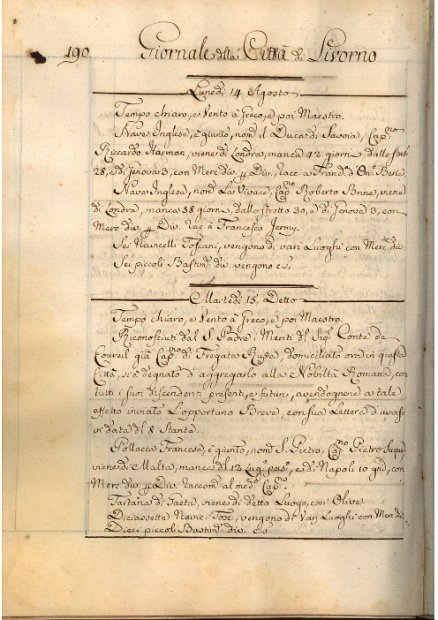 190 Giornale della Città di Livorno
Lunedì 14 Agosto
Tempo chiaro, e Vento a Greco, e poi Maestro.
Nave Inglese, è giunto, nom. il Duca di Savoia, Capno
Riccardo Harmon, viene di Londra, manca 42 giorni, dallo
28, e di Genova 3, con Merc. div. p. Div. race. a Frand.
Nave Inglesa, nom. La Vivace, Capno Roberto Bnne, viene
di Londra, manca 38 giorni, dallo stretto 30, e di Genova 3, con
Merc. div. p. Div. rac. a Francesco Jenny.
Sei Navicelli Toscani, vengono di vari Luoghi con Merc. div.
Sei piccoli Bastim. div. vengono
Martedì 15. Detto
Tempo chiaro, e Vento a Greco, e poi Maestro.
Riconosciuti dal S. Padre i Meriti del Sig. Conte de
Coureil già Capno di Fregata Russa domiciliato ora in questa
Città, si è degnato d'aggregarlo alla Nobiltà Romana, con
tutti i suoi discendenti presenti, e futuri, avendognene a tale
effetto inviato l'opportuno Breve, con sua Lettera d'avviso
in data di 8 Stante.
Pollacca Francese, è giunto, nom. S. Pietro, Capno Pietro
viene di Malta, manca di 12 Lug. pas., e di Napoli 10 gni, con
Merc. div. p. Div. raccom. al med. Capno.
Tartana di Gaeta, viene di detto Luogo, con Olive
Diciassette Navic. Tosc. vengono di Vari Luoghi con Mer. div.
Dieci piccoli Bastim. div.